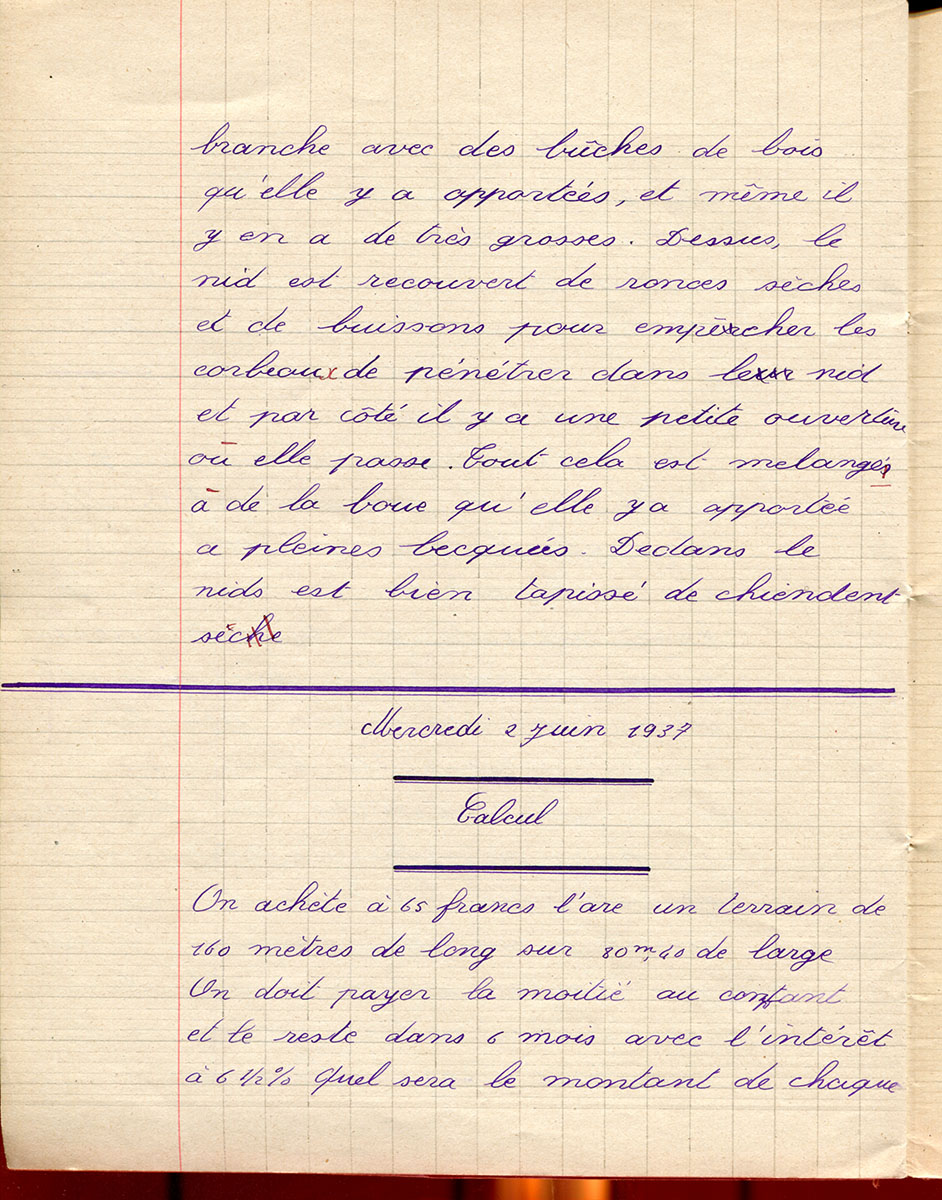 branche avec des bûches de bois
qu'elle y a apportéés, et même il
y en a de très grosses. Dessus, le
nid est recouvert de ronces sèches
et de buissons pour empêcher les
corbeaux de pénétrer dans le nid
et par côté il y a une petite ouverture
où elle passe. Tout cela est melangé
à de la boue qu'elle y a apportéé
a pleines becquéés. Dedans le
nids est bien tapissé de chiendent
sec
Mercredi 2 Juin 1937
Calcul
On achète à 65 francs l'are un terrain de
160 mètres de long sur 80m,40 de large
On doit payer la moitié au comptant
et le reste dans 6 mois avec l'intérêt
à 6 1/2% Quel sera le montant de chaque